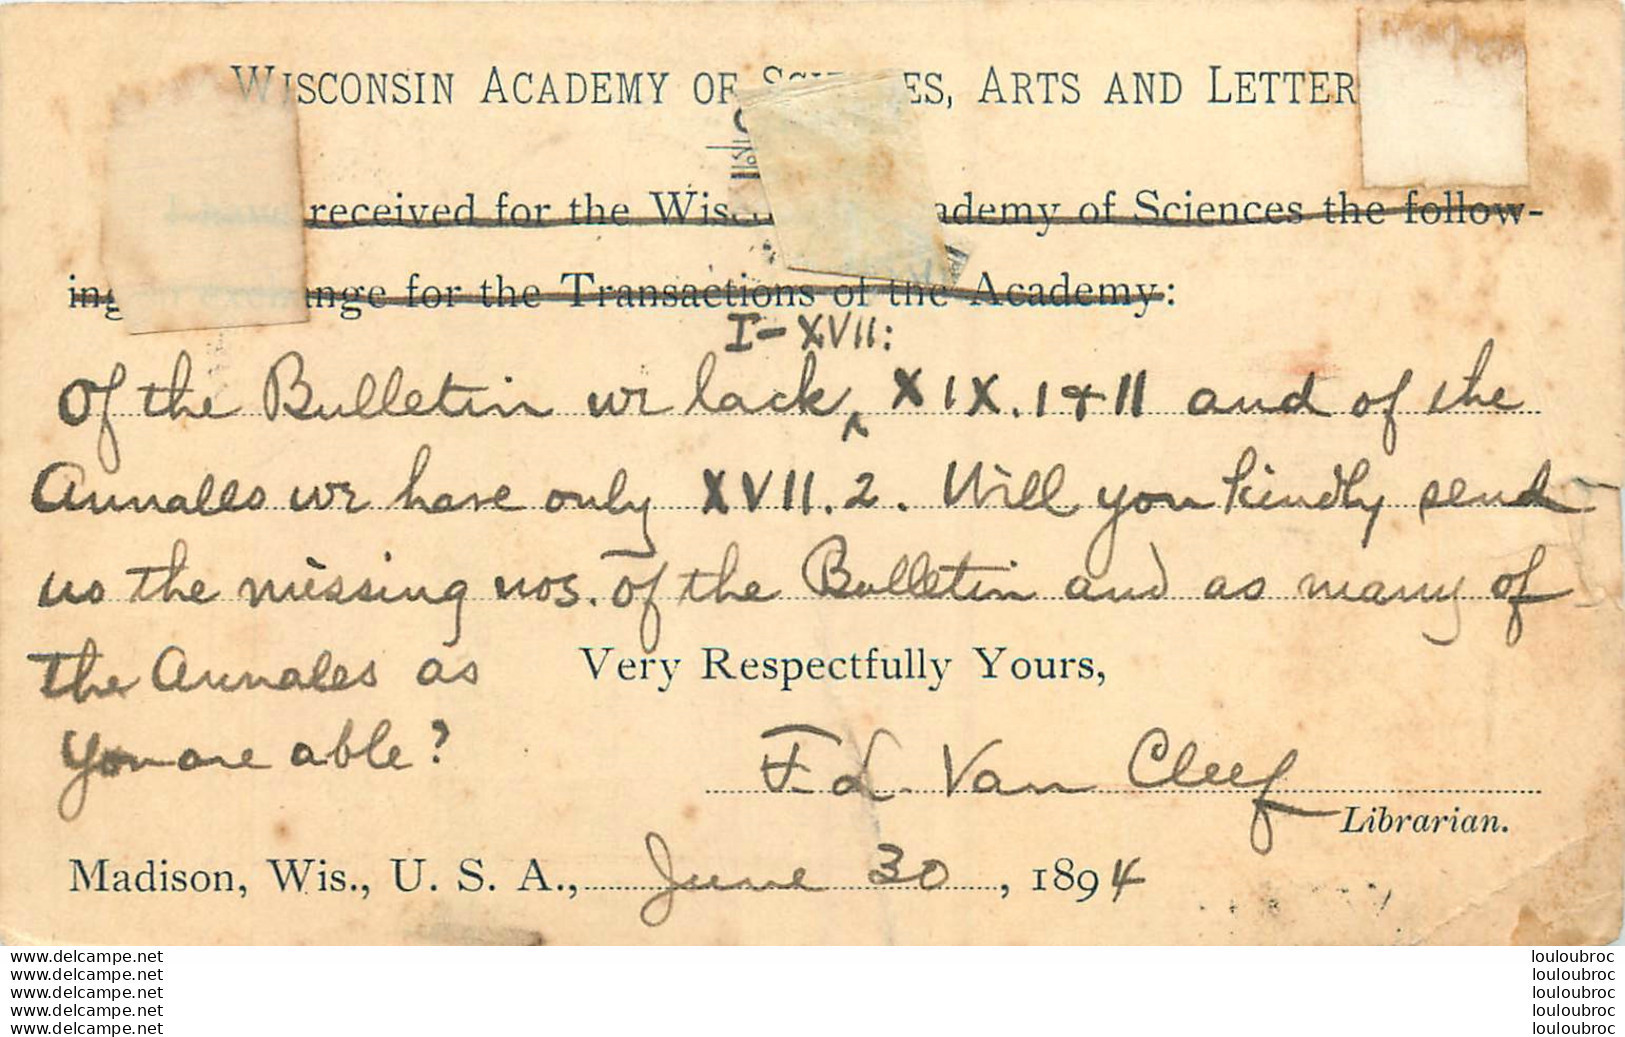 WISCONSIN ACADEMY OF SCIENCES, ARTS AND LETTER
received for the Wisc ademy of Sciences the follow-
ing in exchange for the Transactions of the Academy:
I-XVII:
Of the Bulletin we lack ^ XIX. 1 & 11 and of the
Annales we have only XVII. 2. Will you kindly send
us the missing nos. of the Bulletin and as many of
the Annales as
Very Respectfully Yours,
you are able?
F. L. Van Cleef
Librarian.
Madison, Wis., U. S. A., June 30, 1894
www.delcampe.net louloubroc
www.delcampe.net louloubroc
www.delcampe.net louloubroc
www.delcampe.net louloubroc
www.delcampe.net louloubroc